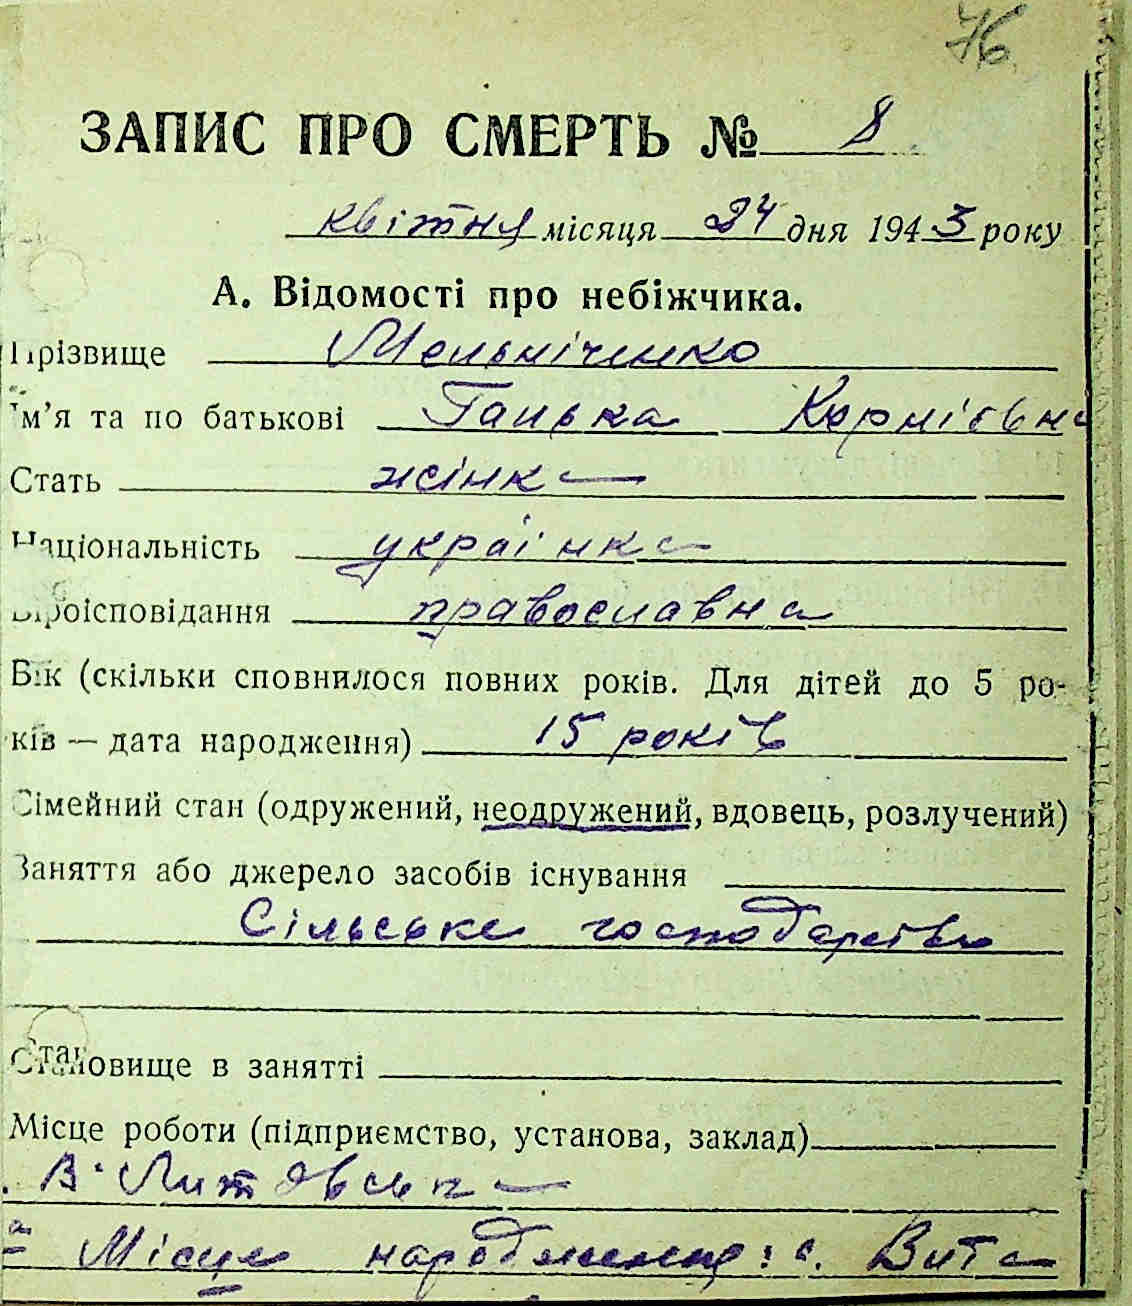 76
ЗАПИС ПРО СМЕРТЬ № 8
квітня місяця 24 дня 1943 року
А. Відомості про небіжчика.
Прізвище Мельніченко
Ім'я та по батькові Ганька Корніевна
Стать жінка
Національність українка
Віроісповідання православна
Вік (скільки сповнилося повних років. Для дітей до 5 ро-
ків — дата народження) 15 років
Сімейний стан (одружений, неодружений, вдовець, розлучений)
Заняття або джерело засобів існування
Сільське господарство
Становище в занятті
Місце роботи (підприємство, установа, заклад)
В. Литовська
Місце народження: с. Вита